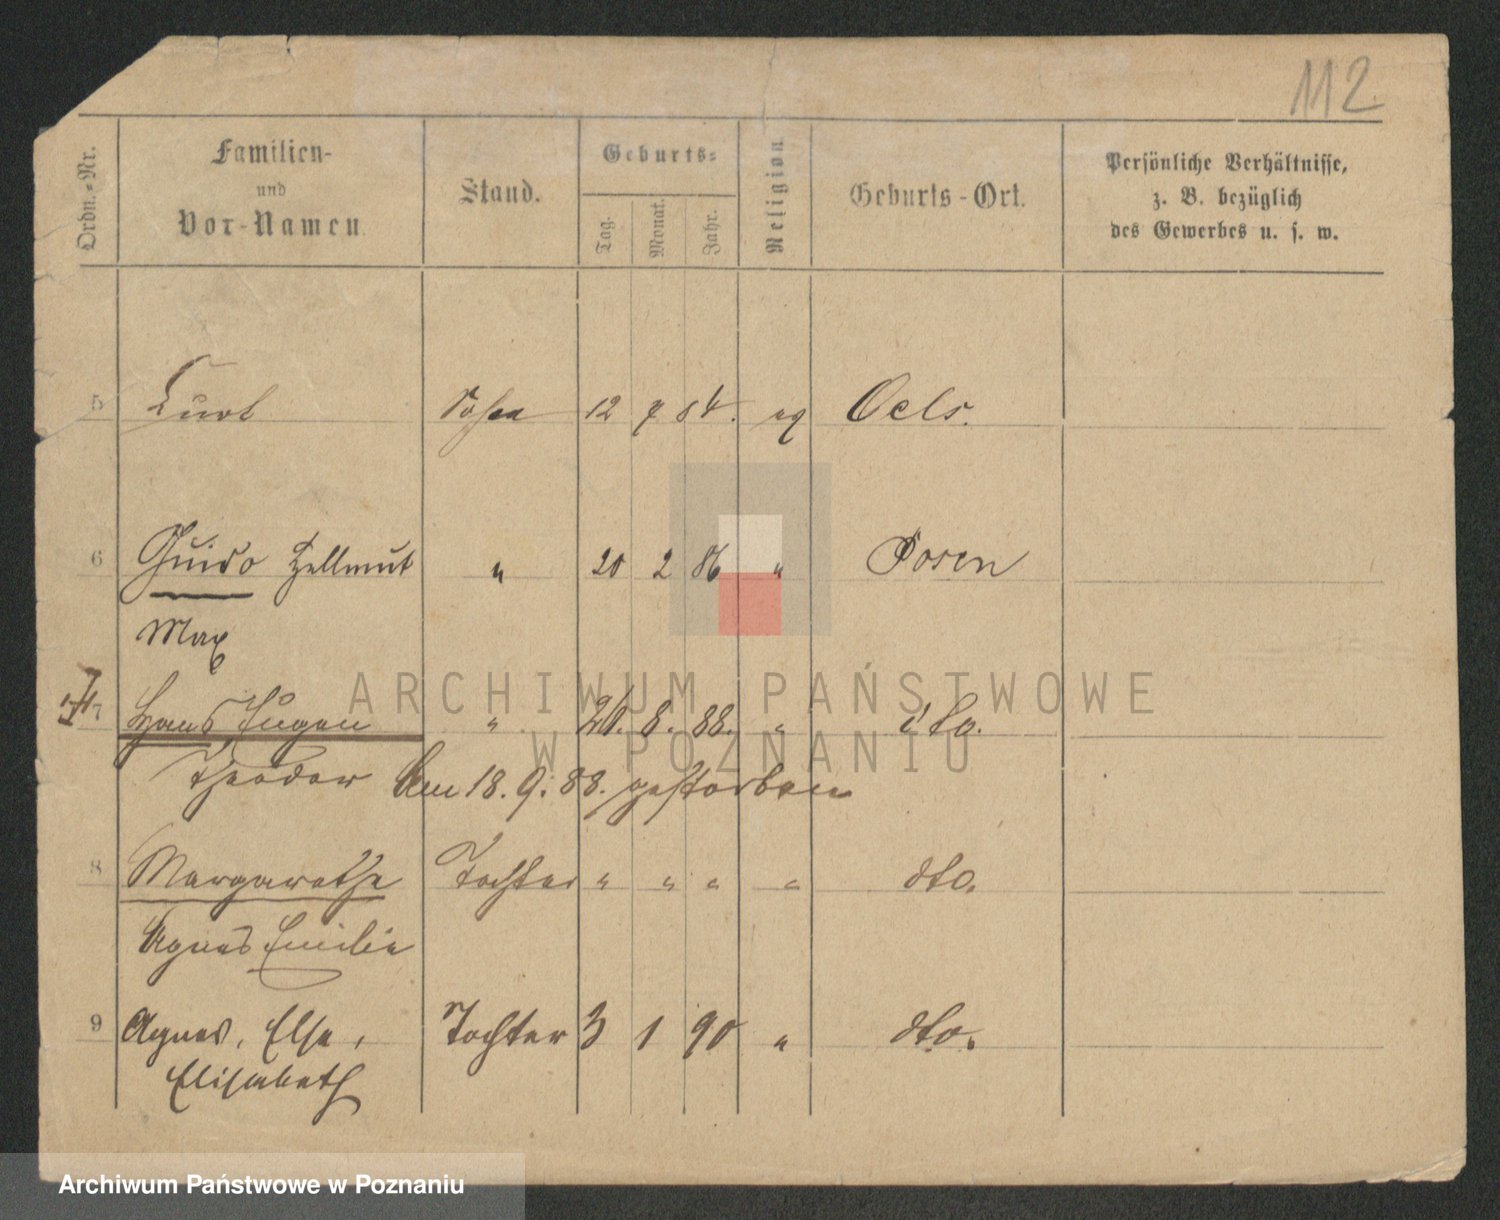 112
Ordn.-Nr.
Familien-
und
Vor-Namen
Stand.
Geburts-
Tag.
Monat.
Jahr.
Religion
Geburts-Ort.
Persönliche Verhältnisse,
z. B. bezüglich
des Gewerbes u. s. w.
5 Curt Sohn 12 7 84. eg Oels.
6 Guido Hellmut " 20 2 86 " Posen
Max
7 Hans Eugen " 21. 8. 88. " dto.
Theodor Am 18. 9. 88. gestorben
8 Margarethe Tochter " " " " dto.
Agnes Emilie
9 Agnes, Else, Tochter 3 1 90 " dto.
Elisabeth
ARCHIWUM PAŃSTWOWE
W POZNANIU
Archiwum Państwowe w Poznaniu